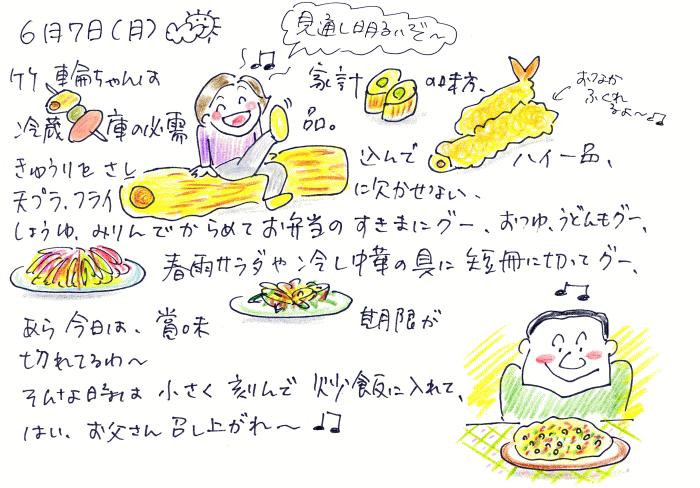 6月7日(月)
見通し明るいぞ〜
竹輪ちゃんは 家計の味方、
冷蔵庫の必需品。
おなか
ふくれ
るよ〜♫
きゅうりをさし込んで ハイ一品、
天プラ、フライに欠かせない、
しょうゆ、みりんでからめてお弁当のすきまにグー、おつゆ、うどんもグー、
春雨サラダや冷し中華の具に短冊に切ってグー、
あら今日は、賞味期限が
切れてるわ〜
そんな時は小さく刻んで炒飯に入れて、
はい、お父さん召し上がれ〜♫